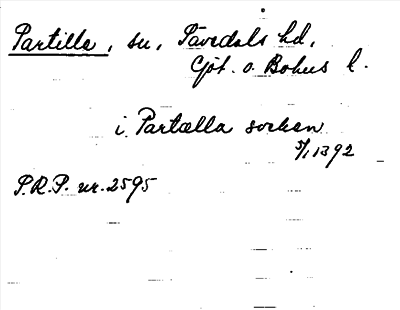 Partille, sn, Sävedals hd,
Göt. o. Bohus l.
i Partælla sockan
5/1 1392
P.R.P. nr. 2595